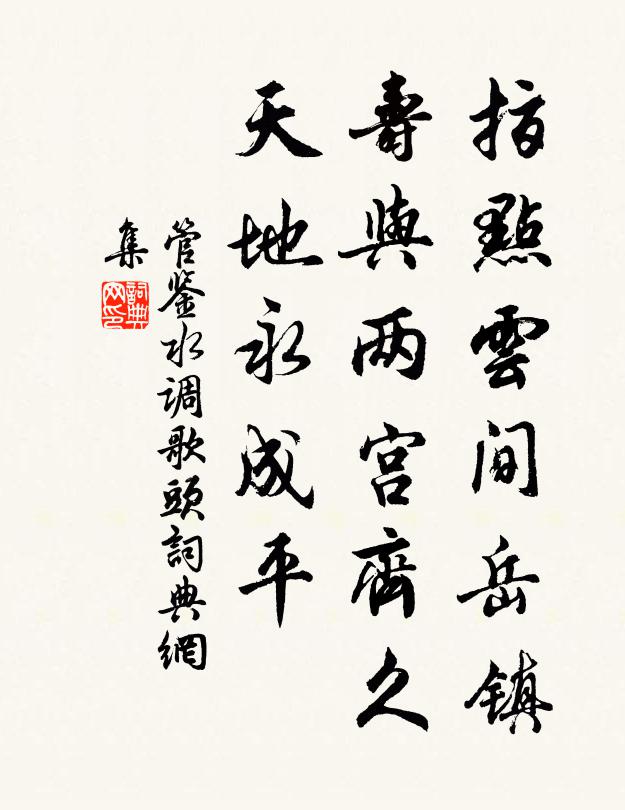 指點雲間岳鎮
壽與两宫齊久
天地永成平
管鉴水调歌頭詞典網
集
詞典
网印